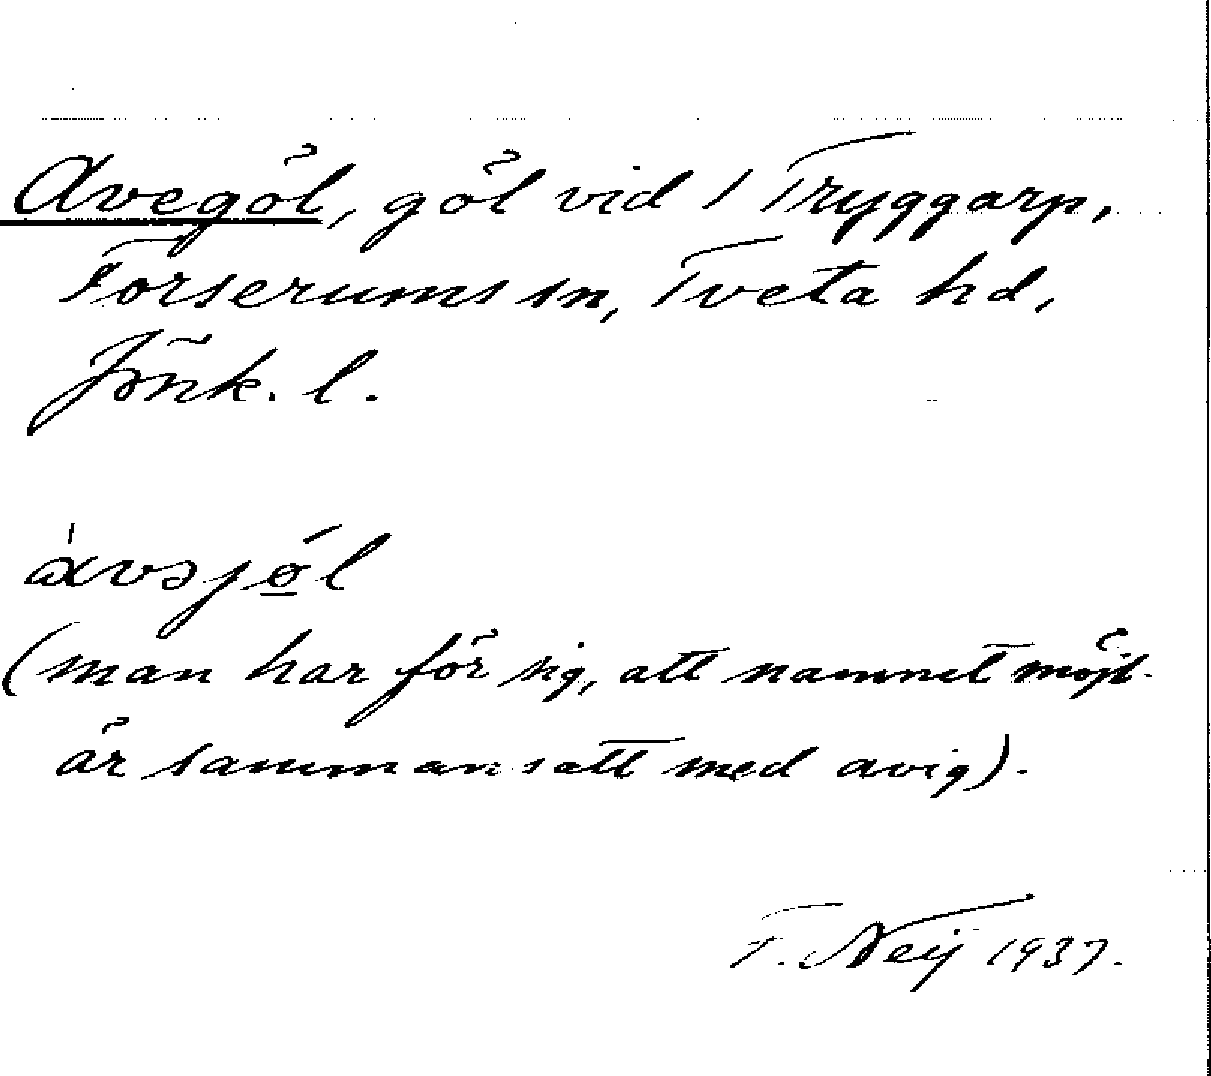 Avegöl, göl vid / Tryggarp,
Forserums sn, Tveta hd,
Jönk. l.
(man har för sig, att namnet möjl.
är sammansatt med avig).
F. Neij 1937.